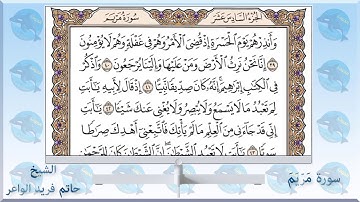 الجزء السادس عشر
سورة مريم
وَأَنذِرْهُمْ يَوْمَ الْحَسْرَةِ إِذْ قُضِيَ الْأَمْرُ وَهُمْ فِي غَفْلَةٍ وَهُمْ لَا يُؤْمِنُونَ
٣٩ إِنَّا نَحْنُ نَرِثُ الْأَرْضَ وَمَنْ عَلَيْهَا وَإِلَيْنَا يُرْجَعُونَ ٤٠ وَاذْكُرْ
فِي الْكِتَابِ إِبْرَاهِيمَ إِنَّهُ كَانَ صِدِّيقًا نَّبِيًّا ٤١ إِذْ قَالَ لِأَبِيهِ يَا أَبَتِ
لِمَ تَعْبُدُ مَا لَا يَسْمَعُ وَلَا يُبْصِرُ وَلَا يُغْنِي عَنكَ شَيْئًا ٤٢ يَا أَبَتِ
إِنِّي قَدْ جَاءَنِي مِنَ الْعِلْمِ مَا لَمْ يَأْتِكَ فَاتَّبِعْنِي أَهْدِكَ صِرَاطًا
سَوِيًّا ٤٣ يَا أَبَتِ لَا تَعْبُدِ الشَّيْطَانَ إِنَّ الشَّيْطَانَ كَانَ لِلرَّحْمَٰنِ
سورة مَرْيَمَ
الشيخ
حاتم فريد الواعر